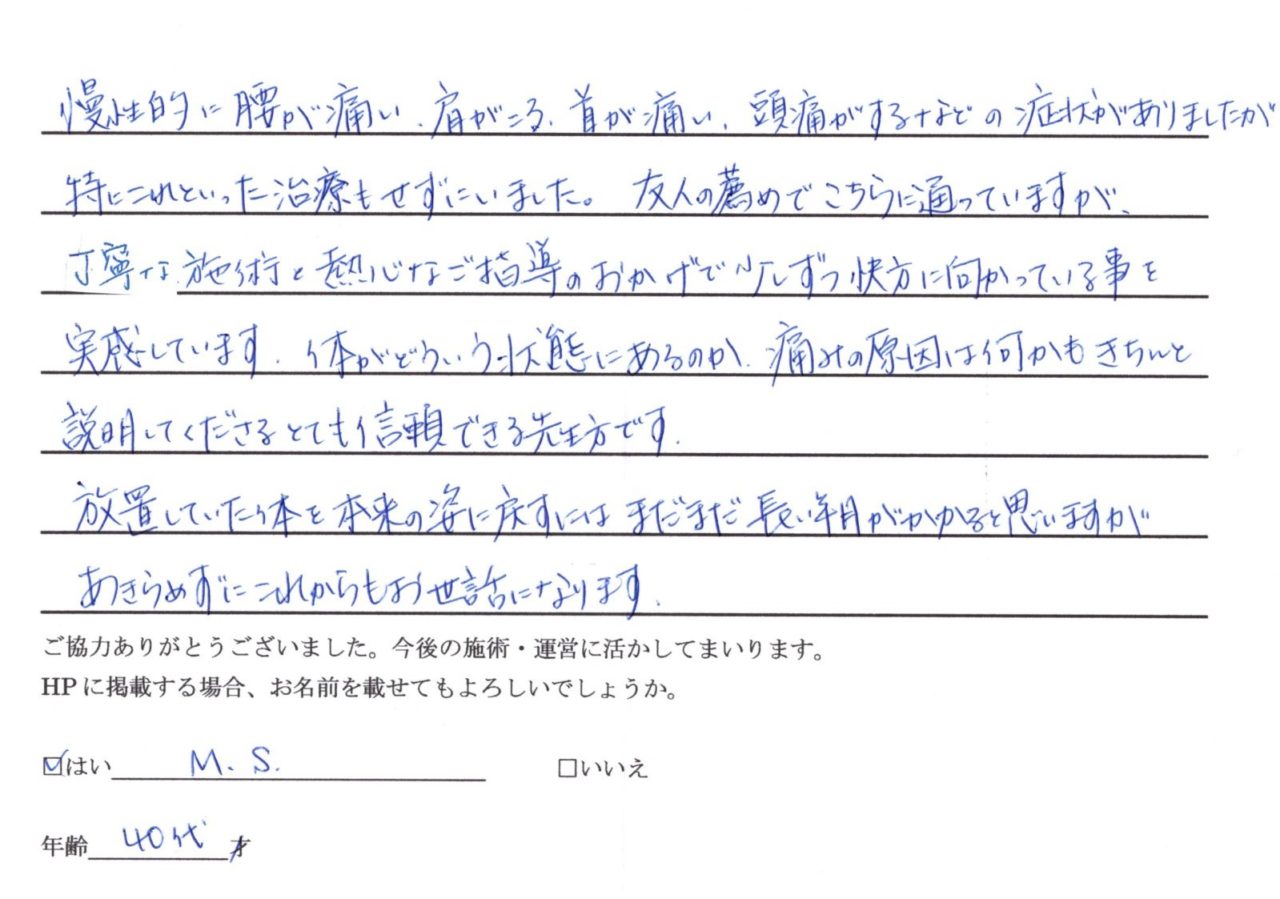 慢性的に腰が痛い、肩がこる、首が痛い、頭痛がするなどの症状がありましたが
特にこれといった治療もせずにいました。友人の薦めでこちらに通っていますが、
丁寧な施術と熱心なご指導のおかげで少しずつ快方に向かっている事を
実感しています。体がどういう状態にあるのか、痛みの原因は何かもきちんと
説明してくださるとても信頼できる先生方です。
放置していた体を本来の姿に戻すにはまだまだ長い年月がかかると思いますが
あきらめずにこれからもお世話になります。
ご協力ありがとうございました。今後の施術・運営に活かしてまいります。
HPに掲載する場合、お名前を載せてもよろしいでしょうか。
☑はい M. S. □いいえ
年齢 40代 才